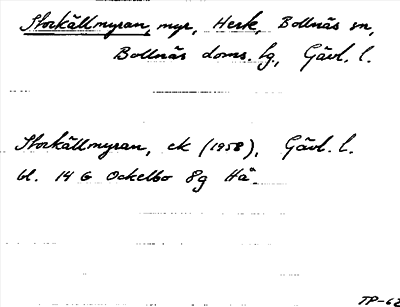 Storkällmyran, myr, Herk, Bollnäs sn,
Bollnäs doms. lg, Gävl. l.
Storkällmyran, ek (1958), Gävl. l.
bl. 14 G Ockelbo 8g Hå.
TP-62